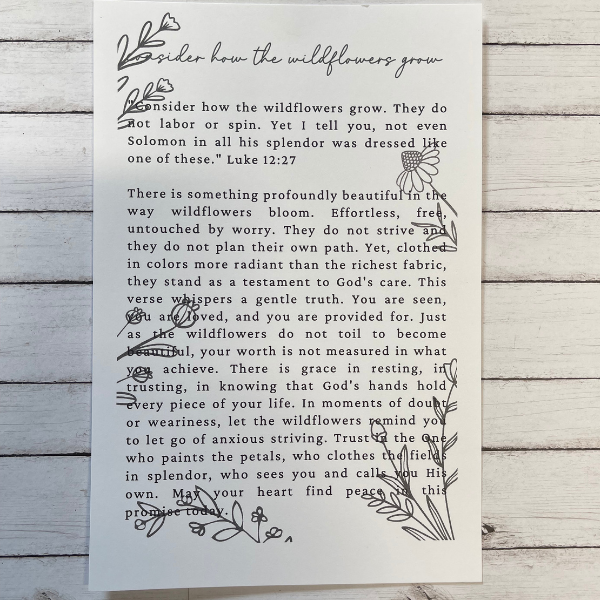 Consider how the wildflowers grow
"Consider how the wildflowers grow. They do
not labor or spin. Yet I tell you, not even
Solomon in all his splendor was dressed like
one of these." Luke 12:27
There is something profoundly beautiful in the
way wildflowers bloom. Effortless, free,
untouched by worry. They do not strive and
they do not plan their own path. Yet, clothed
in colors more radiant than the richest fabric,
they stand as a testament to God's care. This
verse whispers a gentle truth. You are seen,
you are loved, and you are provided for. Just
as the wildflowers do not toil to become
beautiful, your worth is not measured in what
you achieve. There is grace in resting, in
trusting, in knowing that God's hands hold
every piece of your life. In moments of doubt
or weariness, let the wildflowers remind you
to let go of anxious striving. Trust in the One
who paints the petals, who clothes the fields
in splendor, who sees you and calls you His
own. May your heart find peace in this
promise today.